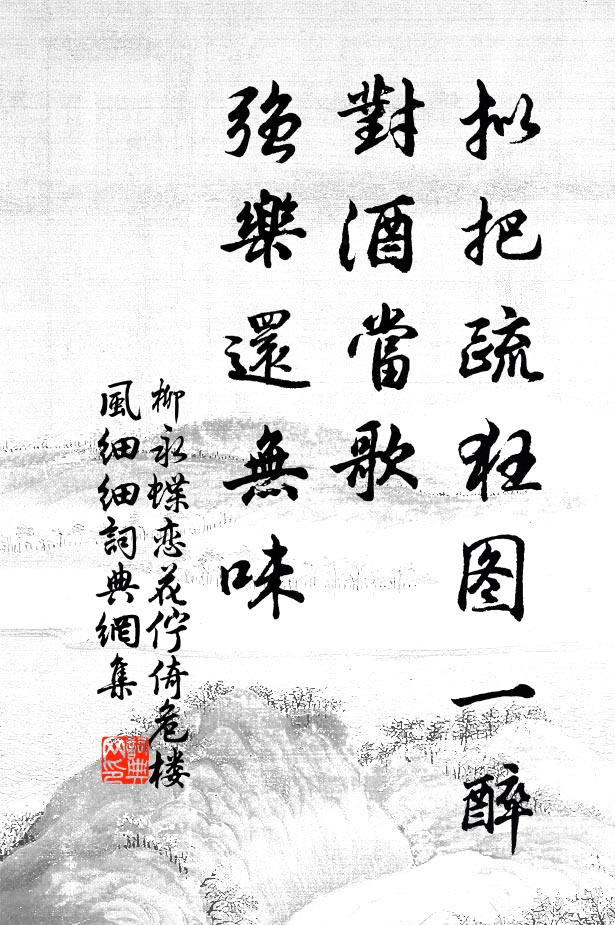 拟把疏狂图一醉
對酒當歌
強樂還無味
柳永蝶恋花佇倚危楼
風細細詞典網集